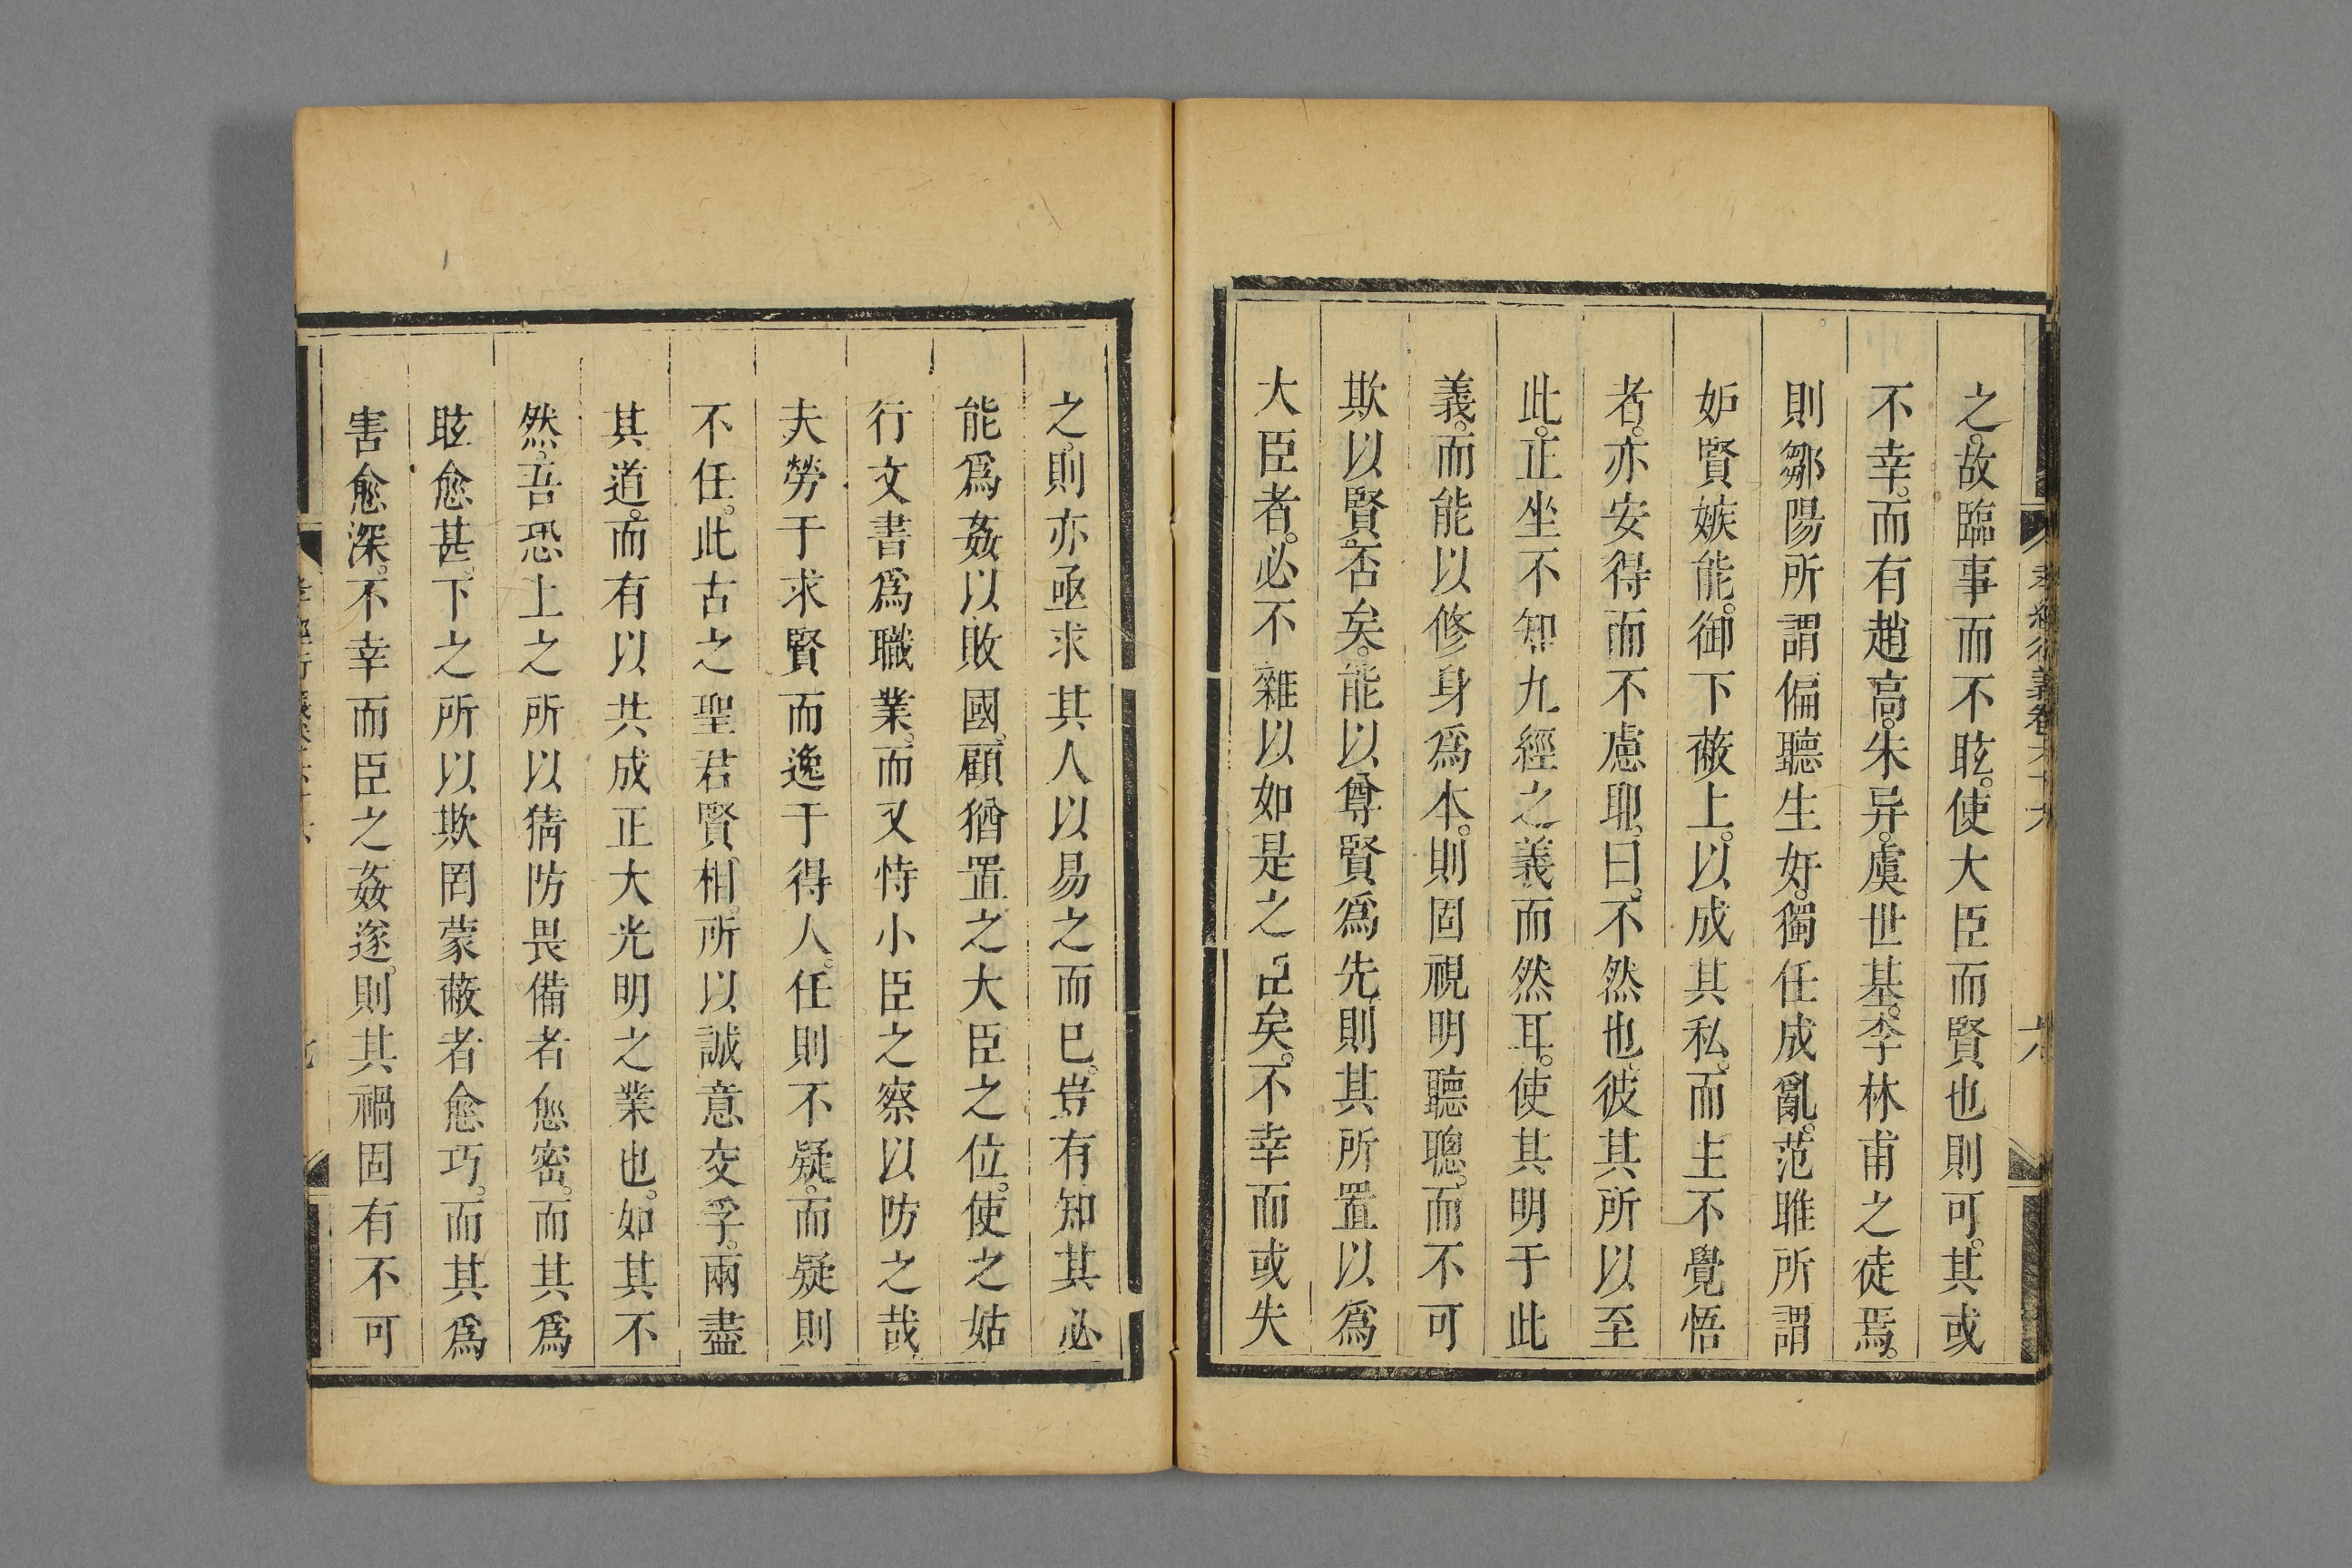 孝經衍義卷六十六
六
之。故臨事而不眩。使大臣而賢也則可。其或
不幸。而有趙高。朱异。虞世基。李林甫之徒焉。
則鄒陽所謂偏聽生奸。獨任成亂。范雎所謂
妒賢嫉能。御下蔽上。以成其私。而主不覺悟
者。亦安得而不慮耶。曰。不然也。彼其所以至
此。正坐不知九經之義而然耳。使其明于此
義。而能以修身爲本。則固視明聽聰。而不可
欺以賢否矣。能以尊賢爲先。則其所置以爲
大臣者。必不雜以如是之臣矣。不幸而或失
之。則亦亟求其人以易之而已。豈有知其必
能爲姦以敗國。顧猶置之大臣之位。使之姑
行文書爲職業。而又恃小臣之察以防之哉
夫勞于求賢而逸于得人。任則不疑。而疑則
不任。此古之聖君賢相。所以誠意交孚。兩盡
其道。而有以共成正大光明之業也。如其不
然。吾恐上之所以猜防畏備者愈密。而其爲
眩愈甚。下之所以欺罔蒙蔽者愈巧。而其爲
害愈深。不幸而臣之姦遂。則其禍固有不可